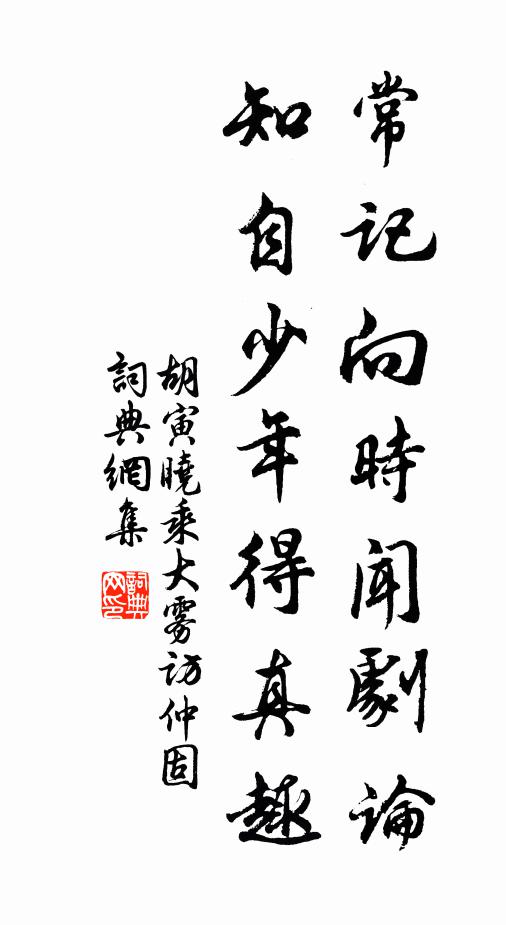 常記向時聞劇論
知自少年得真趣
胡寅曉乘大霧訪仲固
詞典網集
詞典網印